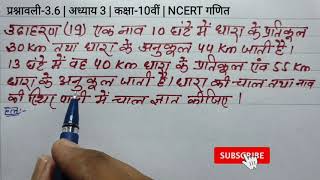 प्रश्नावली-3.6 | अध्याय 3 | कक्षा-10वीं | NCERT गणित
उदाहरण (19) एक नाव 10 घंटे में धारा के प्रतिकूल
30 km तथा धारा के अनुकूल 44 km जाती है।
13 घंटे में वह 40 km धारा के प्रतिकूल एवं 55 km
धारा के अनुकूल जाती है। धारा की चाल तथा नाव
की स्थिर पानी में चाल ज्ञात कीजिए।
हल:-
SUBSCRIBE